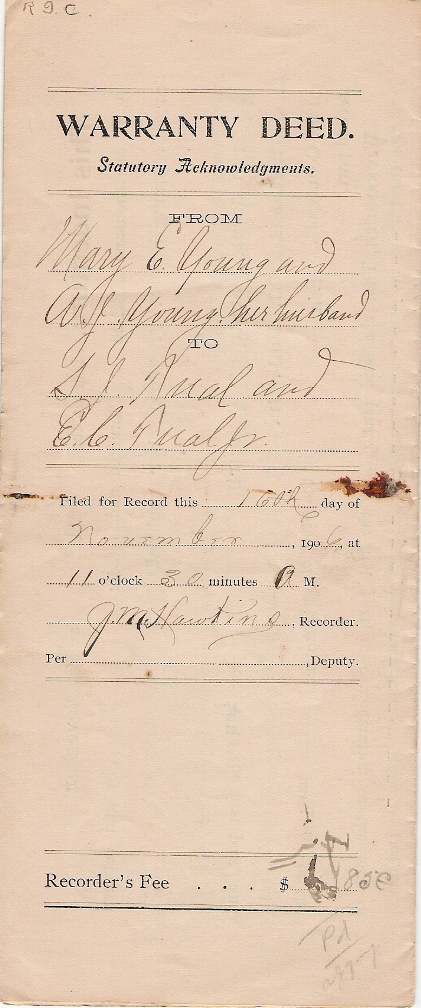 R I C
WARRANTY DEED.
Statutory Acknowledgments.
FROM
Mary E Young and
A J Young, her husband
TO
S. J. Rual and
E. C. Rual Jr.
Filed for Record this 16th day of
November, 1906, at
11 o'clock 30 minutes A M.
J M Hawkins, Recorder.
Per , Deputy.
Recorder's Fee . . . $
Pd